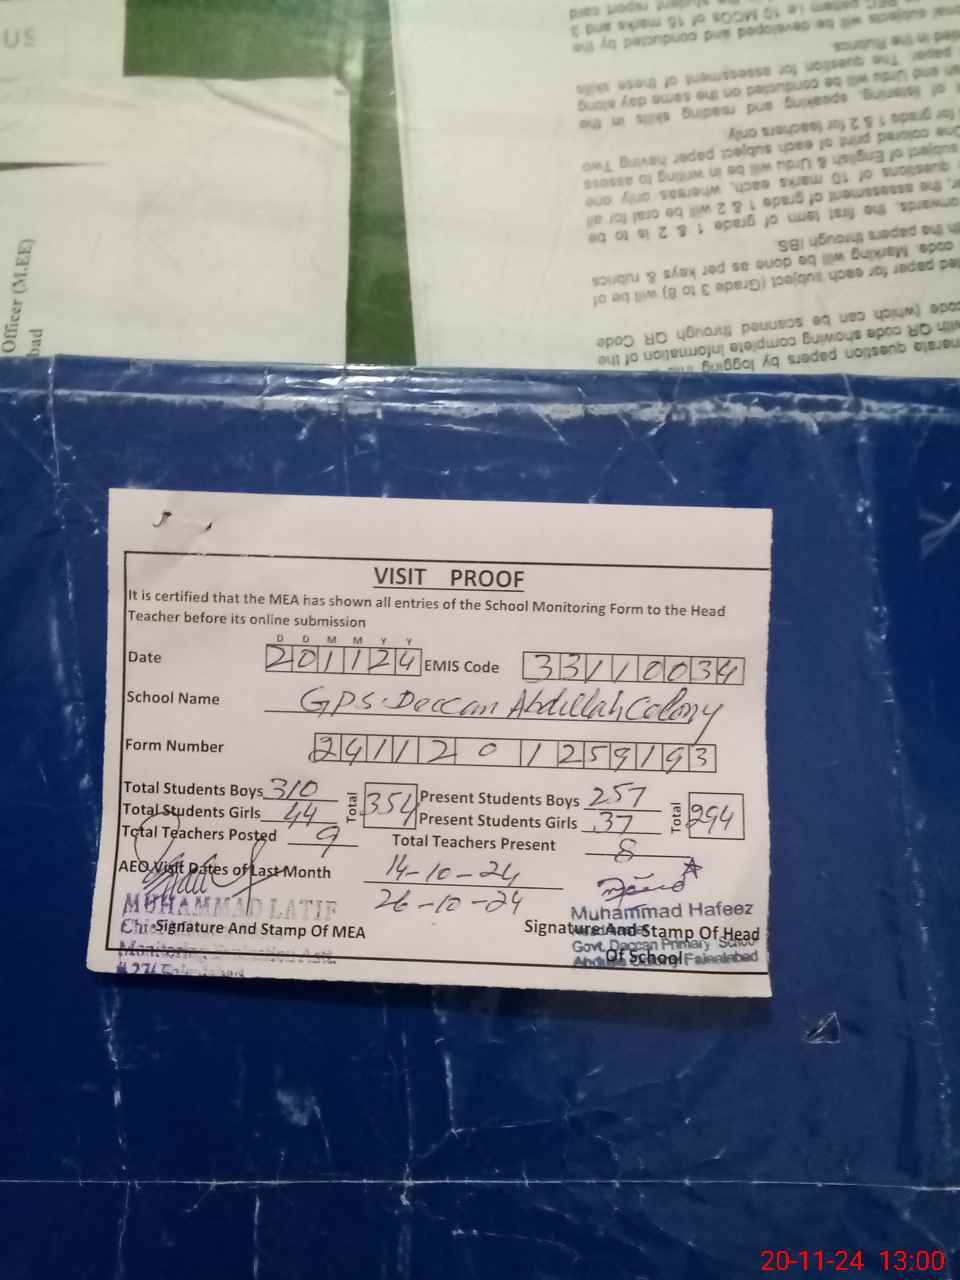 US
Officer (M.EE)
bad
student report card
REC pattern i.e 10 MCQs of 15 marks and 3
nal subjects will be developed and conducted by the
ed in the Rubrics.
paper. The question for assessment of these skills
n and Urdu will be conducted on the same day along
of listening, speaking and reading skills in the
for grade 1 & 2 for teachers only.
One colored print of each subject paper having Two
subject of English & Urdu will be in writing to assess
questions of 10 marks each, whereas only one
r, the assessment of grade 1 & 2 will be oral for all
onwards, the first term of grade 1 & 2 is to be
h the papers through IBS.
code. Marking will be done as per keys & rubrics
ted paper for each subject (Grade 3 to 8) will be of
code (which can be scanned through QR Code
with QR code showing complete information of the
nerate question papers by logging
VISIT PROOF
It is certified that the MEA has shown all entries of the School Monitoring Form to the Head
Teacher before its online submission
D D M M Y Y
Date 201124 EMIS Code 33110034
School Name GPS. Deccan Abdullah Colony
Form Number 24112 0 1259193
Total Students Boys 310 Total 354 Present Students Boys 257 Total 294
Total Students Girls 44 Present Students Girls 37
Total Teachers Posted 9 Total Teachers Present 8
AEO Visit Dates of Last Month 14-10-24
26-10-24
MUHAMMAD LATIF
Muhammad Hafeez
Signature And Stamp Of MEA Signature And Stamp Of Head
Of School
Govt. Deccan Primary School
Abdullah Colony Faisalabad
20-11-24 13:00